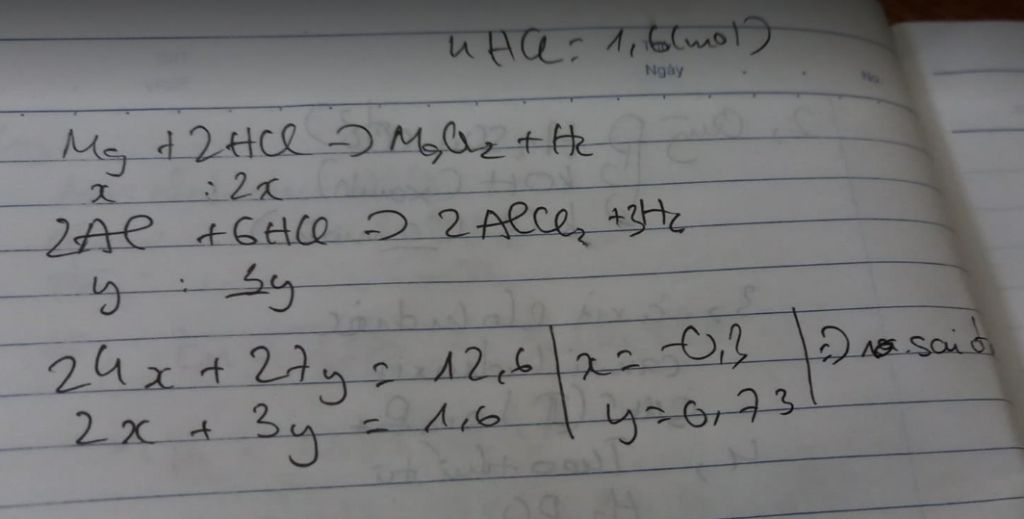 nHCl = 1,6(mol)
Ngày
No.
Mg + 2HCl => MgCl2 + H2
x : 2x
2Al + 6HCl => 2AlCl2 + 3H2
y : 3y
24x + 27y = 12,6 | x = -0,3 | =>
2x + 3y = 1,6 | y = 0,73